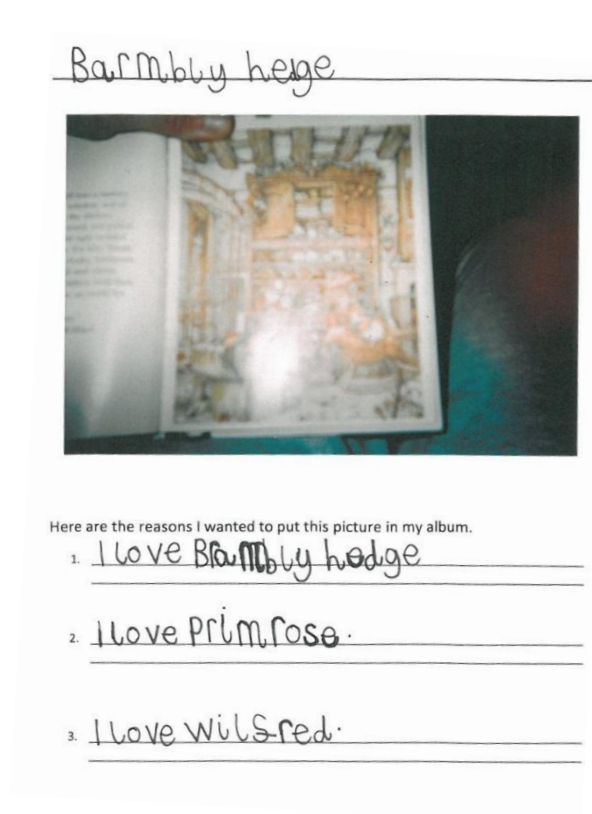 Barmbly hedge
Here are the reasons I wanted to put this picture in my album.
1. I love Brambly hedge
2. I love primrose.
3. I love wilsred.